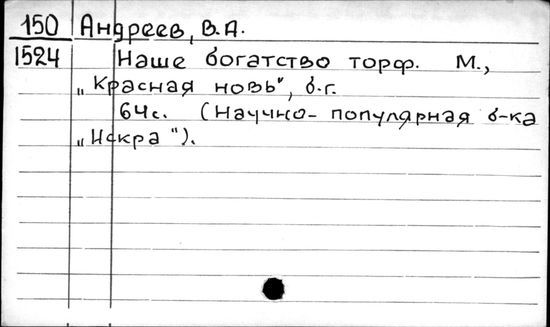 150 Андреев, В.А.
1524 Наше богатство торф. М.,
„Красная новь", б.г.
64с. (Научно-популярная б-ка
„Искра").